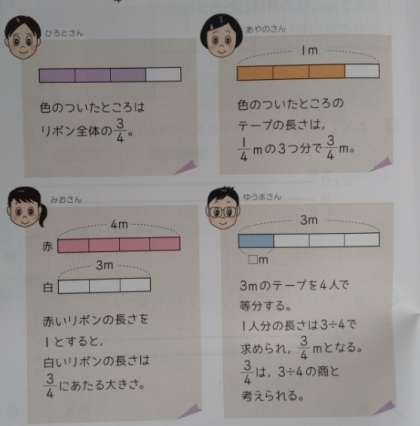 ひろとさん
色のついたところは
リボン全体の3/4。
あやのさん
1m
色のついたところの
テープの長さは,
1/4mの3つ分で3/4m。
みおさん
4m
赤
3m
白
赤いリボンの長さを
1とすると,
白いリボンの長さは
3/4にあたる大きさ。
ゆうまさん
3m
□m
3mのテープを4人で
等分する。
1人分の長さは3÷4で
求められ,3/4mとなる。
3/4は,3÷4の商と
考えられる。